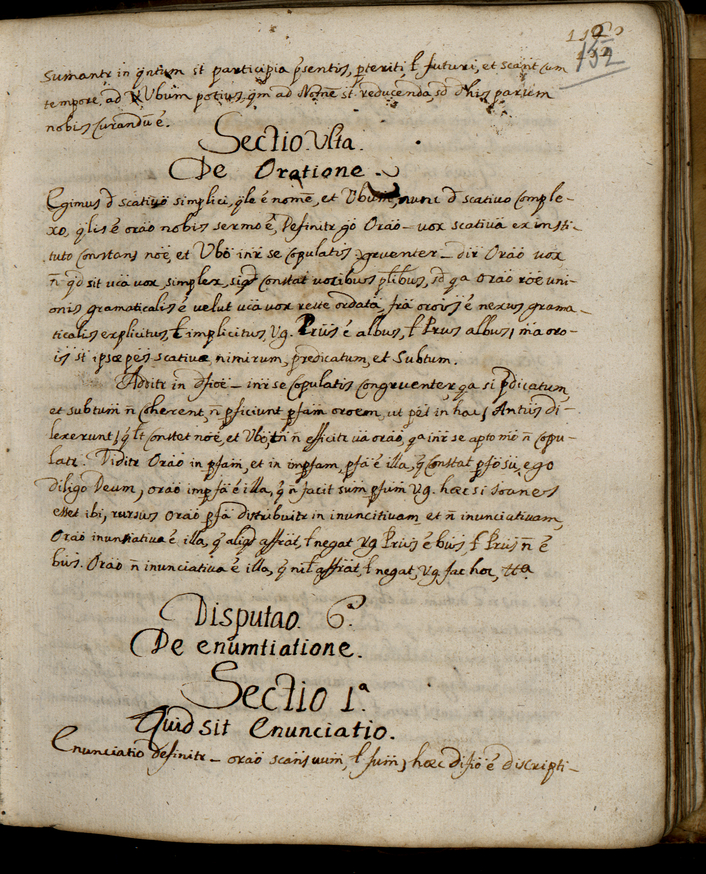 132
sumantr in qntum st participia psentis, pteriti, ł futuri, et scant cum
tempore, ad Vbum potius, qm ad Nomē st reducenda, sd his pariem
nobis curandu ē.
Sectio Vlta.
De Oratione.
Egimus d scativo simplici, qle ē nomē, et Vbum, nunc d scativo comple-
xo, qlis ē orāo nobis sermo ē, Definitr go Orāo - vox scativa ex insti-
tuto constans noē, et Vbo inr se copulatis congruenter - dir Orāo vox
n qd sit uca vox simplex, siqd constat vocibus plibus, sd qa orāo roē uni-
onis gramaticalis ē velut uca vox recte ordata, fra orois ē nexus grama-
ticalis explicitus, ł implicitus, Vg. Prus ē albus, ł Prus albus, ma oro-
is st ipsæ pes scativæ nimirum, predicatum, et Subtum.
Additr in dfiōe - inr se copulatis congruenter, qa si pdicatum,
et subtum n coherent, n pficiunt pfam oroem, ut pet in hac, Antius di-
lexerunt, q lt constet noē, et Vbo, tn n efficitr va orāo, qa inr se apto mō n copu-
latr. Diditr Orāo in pfam, et in impfam, pfa ē illa, q constat pfo su, ego
Diligo Deum, orāo impfa ē illa, q n facit sum pfum Vg. hæc si Joanes
esset ibi, rursus Orāo pfa distribuitr in inuncitivam et n inunciativam,
Orāo inuntiativa ē illa, q aliqd affrat, ł negat Vg Prus ē bus, ł Prus n ē
bus. Orāo n inunciativa ē illa, q nil affrat, ł negat, Vg fac hoc, &a
Disputāo. 6ª.
De enumtiatione.
Sectio 1ª.
Quid sit Enunciatio.
Enunciatio definitr - orāo scans uum, ł fsum, hæc difiō ē discripti-